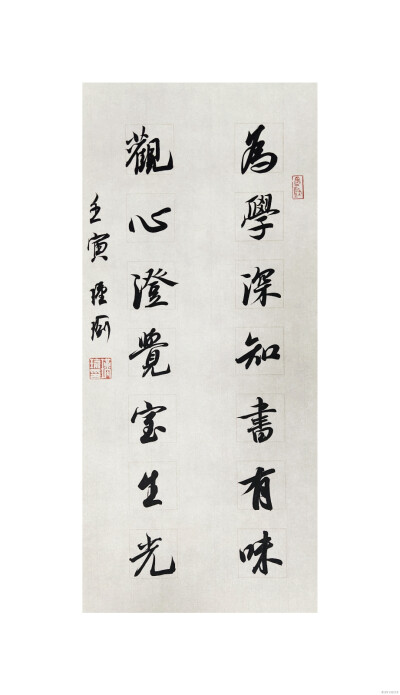 為學深知書有味
觀心澄覺室生光
壬寅